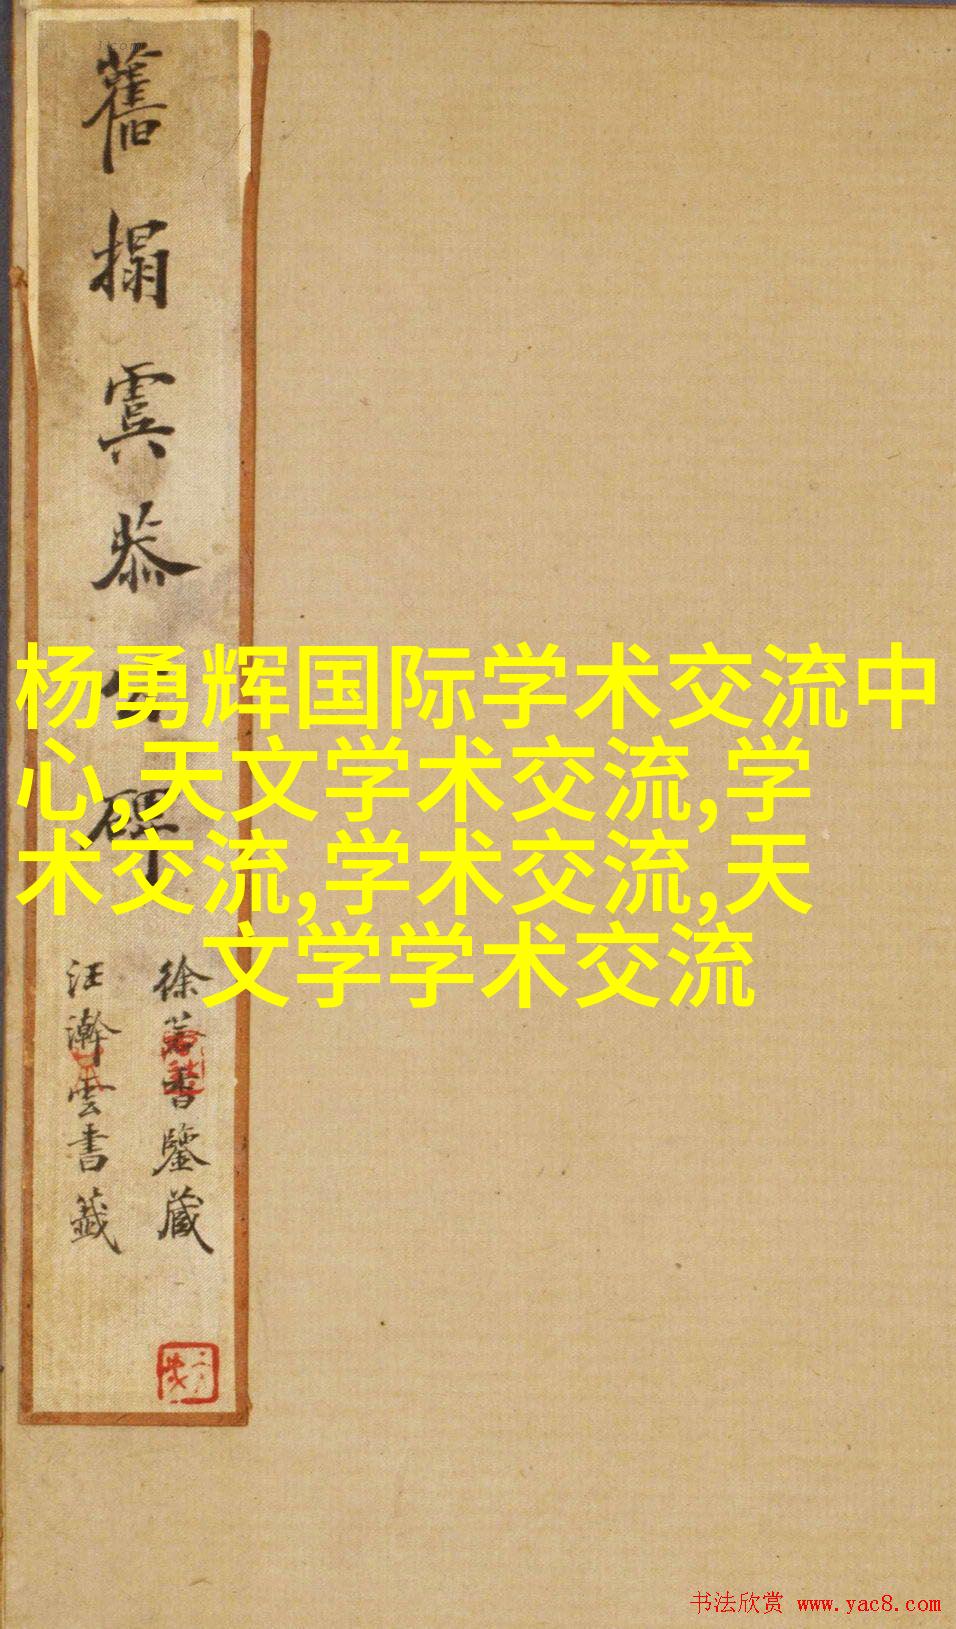 舊搨虞恭公碑
徐若書鑒藏
汪澣雲書籤
杨勇辉国际学术交流中
心,天文学术交流,学
术交流,学术交流,天
文学学术交流
书法欣赏 www.yac8.com